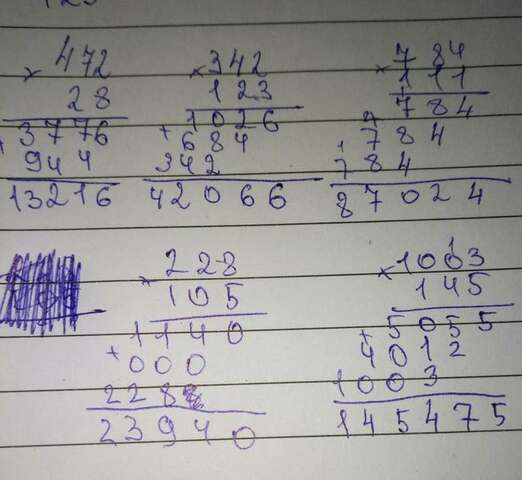 × 472
28
3776
+ 944
13216
× 342
123
1026
+ 684
342
42066
× 784
111
784
784
784
87024
× 228
105
1140
+ 000
228
23940
1
× 1003
145
5055
+ 4012
1003
145475